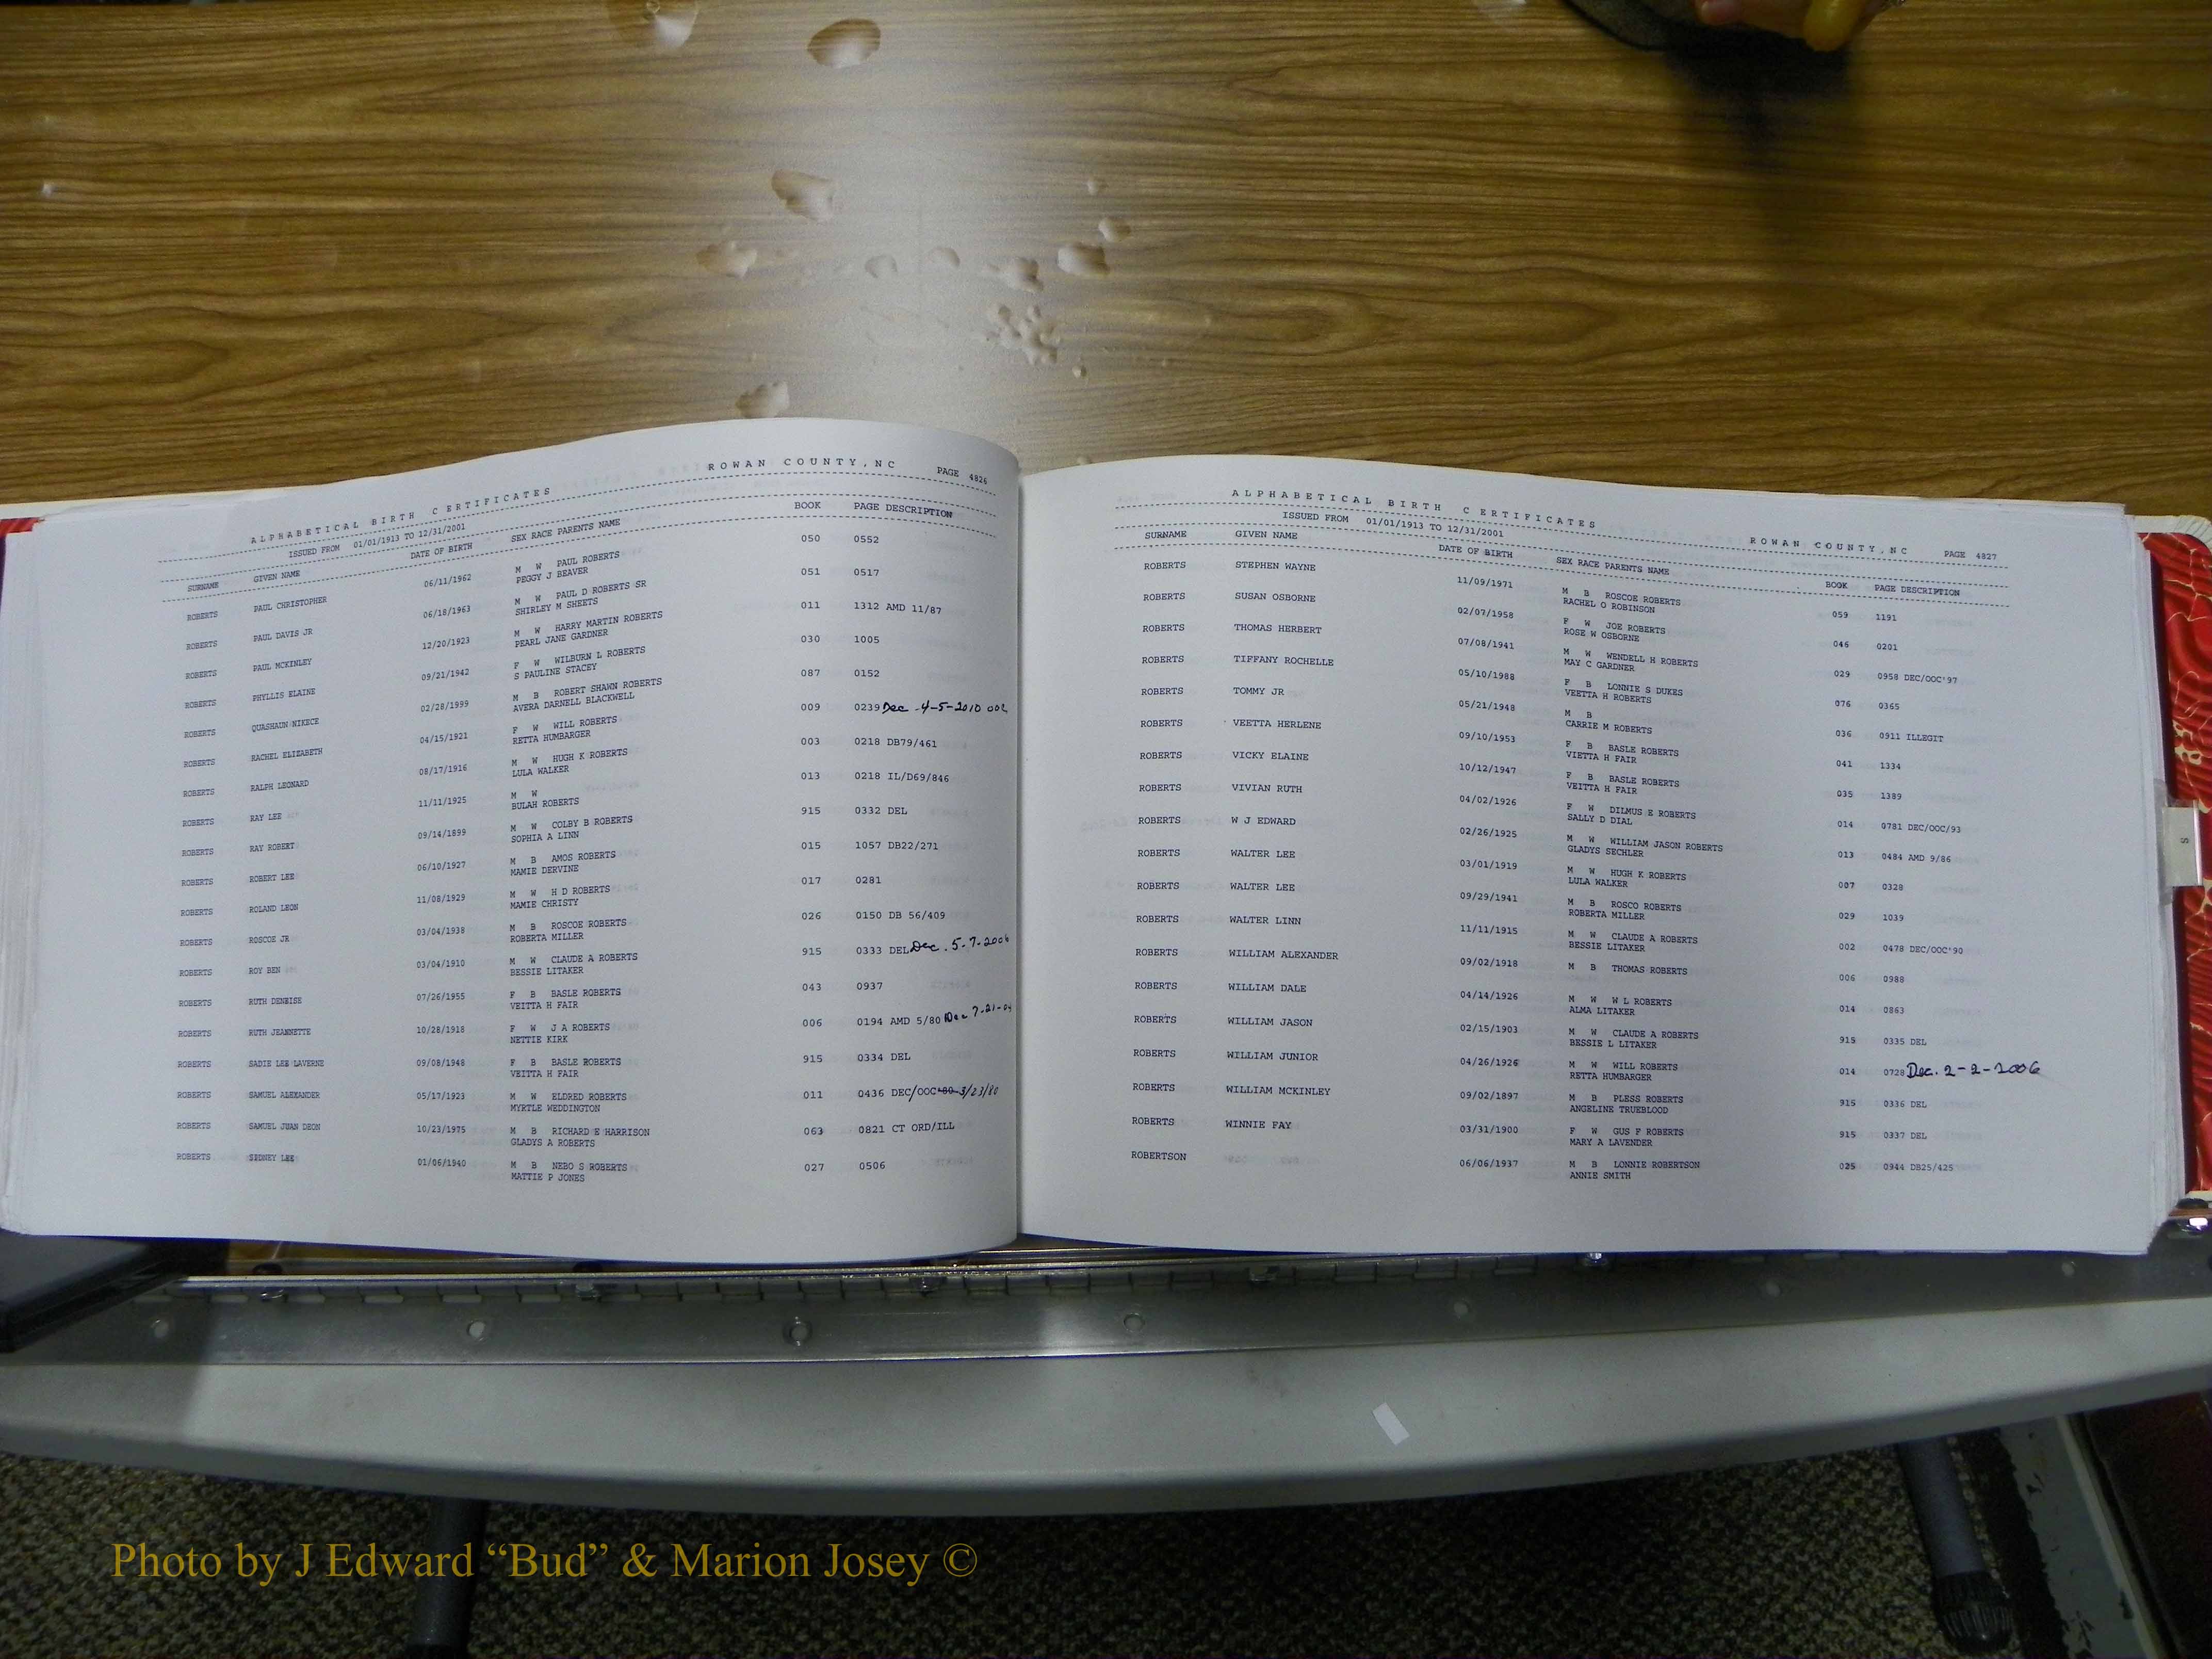 ROWAN COUNTY, NC PAGE 4826
ALPHABETICAL BIRTH CERTIFICATES
ISSUED FROM 01/01/1913 TO 12/31/2001
SURNAME GIVEN NAME DATE OF BIRTH SEX RACE PARENTS NAME BOOK PAGE DESCRIPTION
ROBERTS PAUL CHRISTOPHER 06/11/1962 M W PAUL ROBERTS 050 0552
PEGGY J BEAVER
ROBERTS PAUL DAVIS JR 06/18/1963 M W PAUL D ROBERTS SR 051 0517
SHIRLEY M SHEETS
ROBERTS PAUL MCKINLEY 12/20/1923 M W HARRY MARTIN ROBERTS 011 1312 AMD 11/87
PEARL JANE GARDNER
ROBERTS PHYLLIS ELAINE 09/21/1942 F W WILBURN L ROBERTS 030 1005
S PAULINE STACEY
ROBERTS QUASHAUN NIKECE 02/28/1999 M B ROBERT SHAWN ROBERTS 087 0152
AVERA DARNELL BLACKWELL
ROBERTS RACHEL ELIZABETH 04/15/1921 F W WILL ROBERTS 009 0239 Dec -4-5-2010 ooc
RETTA HUMBARGER
ROBERTS RALPH LEONARD 08/17/1916 M W HUGH K ROBERTS 003 0218 DB79/461
LULA WALKER
ROBERTS RAY LEE 11/11/1925 M W 013 0218 IL/D69/846
BULAH ROBERTS
ROBERTS RAY ROBERT 09/14/1899 M W COLBY B ROBERTS 915 0332 DEL
SOPHIA A LINN
ROBERTS ROBERT LEE 06/10/1927 M B AMOS ROBERTS 015 1057 DB22/271
MAMIE DERVINE
ROBERTS ROLAND LEON 11/08/1929 M W H D ROBERTS 017 0281
MAMIE CHRISTY
ROBERTS ROSCOE JR 03/04/1938 M B ROSCOE ROBERTS 026 0150 DB 56/409
ROBERTA MILLER
ROBERTS ROY BEN 03/04/1910 M W CLAUDE A ROBERTS 915 0333 DEL Dec. 5-7-2006
BESSIE LITAKER
ROBERTS RUTH DENEISE 07/26/1955 F B BASLE ROBERTS 043 0937
VEITTA H FAIR
ROBERTS RUTH JEANNETTE 10/28/1918 F W J A ROBERTS 006 0194 AMD 5/80 Dec 7-21-04
NETTIE KIRK
ROBERTS SADIE LEE LAVERNE 09/08/1948 F B BASLE ROBERTS 915 0334 DEL
VEITTA H FAIR
ROBERTS SAMUEL ALEXANDER 05/17/1923 M W ELDRED ROBERTS 011 0436 DEC/OOC 3/23/80
MYRTLE WEDDINGTON
ROBERTS SAMUEL JUAN DEON 10/23/1975 M B RICHARD E HARRISON 063 0821 CT ORD/ILL
GLADYS A ROBERTS
ROBERTS SIDNEY LEE 01/06/1940 M B NEBO S ROBERTS 027 0506
MATTIE P JONES
ALPHABETICAL BIRTH CERTIFICATES
ISSUED FROM 01/01/1913 TO 12/31/2001
ROWAN COUNTY, NC PAGE 4827
SURNAME GIVEN NAME DATE OF BIRTH SEX RACE PARENTS NAME BOOK PAGE DESCRIPTION
ROBERTS STEPHEN WAYNE 11/09/1971 M B ROSCOE ROBERTS 059 1191
RACHEL O ROBINSON
ROBERTS SUSAN OSBORNE 02/07/1958 F W JOE ROBERTS 046 0201
ROSE W OSBORNE
ROBERTS THOMAS HERBERT 07/08/1941 M W WENDELL H ROBERTS 029 0958 DEC/OOC'97
MAY C GARDNER
ROBERTS TIFFANY ROCHELLE 05/10/1988 F B LONNIE S DUKES 076 0365
VEETTA H ROBERTS
ROBERTS TOMMY JR 05/21/1948 M B 036 0911 ILLEGIT
CARRIE M ROBERTS
ROBERTS VEETTA HERLENE 09/10/1953 F B BASLE ROBERTS 041 1334
VIETTA H FAIR
ROBERTS VICKY ELAINE 10/12/1947 F B BASLE ROBERTS 035 1389
VEITTA H FAIR
ROBERTS VIVIAN RUTH 04/02/1926 F W DILMUS E ROBERTS 014 0781 DEC/OOC/93
SALLY D DIAL
ROBERTS W J EDWARD 02/26/1925 M W WILLIAM JASON ROBERTS 013 0484 AMD 9/86
GLADYS SECHLER
ROBERTS WALTER LEE 03/01/1919 M W HUGH K ROBERTS 007 0328
LULA WALKER
ROBERTS WALTER LEE 09/29/1941 M B ROSCO ROBERTS 029 1039
ROBERTA MILLER
ROBERTS WALTER LINN 11/11/1915 M W CLAUDE A ROBERTS 002 0478 DEC/OOC'90
BESSIE LITAKER
ROBERTS WILLIAM ALEXANDER 09/02/1918 M B THOMAS ROBERTS 006 0988
ROBERTS WILLIAM DALE 04/14/1926 M W W L ROBERTS 014 0863
ALMA LITAKER
ROBERTS WILLIAM JASON 02/15/1903 M W CLAUDE A ROBERTS 915 0335 DEL
BESSIE L LITAKER
ROBERTS WILLIAM JUNIOR 04/26/1926 M W WILL ROBERTS 014 0728 Dec. 2-2-2006
RETTA HUMBARGER
ROBERTS WILLIAM MCKINLEY 09/02/1897 M B PLESS ROBERTS 915 0336 DEL
ANGELINE TRUEBLOOD
ROBERTS WINNIE FAY 03/31/1900 F W GUS F ROBERTS 915 0337 DEL
MARY A LAVENDER
ROBERTSON 06/06/1937 M B LONNIE ROBERTSON 025 0944 DB25/425
ANNIE SMITH
Photo by J Edward “Bud” & Marion Josey ©